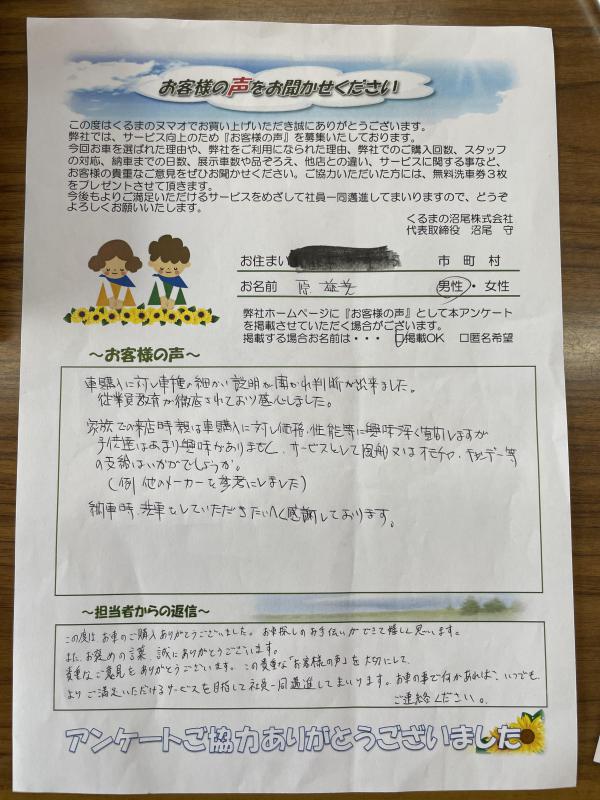 お客様の声をお聞かせください
この度はくるまのヌマオでお買い上げいただき誠にありがとうございます。
弊社では、サービス向上のため『お客様の声』を募集いたしております。
今回お車を選ばれた理由や、弊社をご利用になられた理由、弊社でのご購入回数、スタッフ
の対応、納車までの日数、展示車数や品ぞろえ、他店との違い、サービスに関する事など、
お客様の貴重なご意見をぜひお聞かせください。ご協力いただいた方には、無料洗車券3枚
をプレゼントさせて頂きます。
今後もよりご満足いただけるサービスをめざして社員一同邁進してまいりますので、どうぞ
よろしくお願いいたします。
くるまの沼尾株式会社
代表取締役 沼尾 守
お住まい 市 町 村
お名前 原 雄 男性・女性
弊社ホームページに『お客様の声』として本アンケート
を掲載させていただく場合がございます。
掲載する場合お名前は・・・ □掲載OK □匿名希望
～お客様の声～
車購入に対し車種の細かい説明が聞かれ判断が出来ました。
従業員教育が徹底されており感心しました。
家族での来店時親は車購入に対し価格、性能等に興味深く質問しますが
子供達はあまり興味がありません、サービスとして風船又はオモチャ、キャンデー等
の支給はいかがでしょうか。
(例 他のメーカーを参考にしました)
納車時、洗車をしていただきたいへん感謝しております。
～担当者からの返信～
この度は お車のご購入ありがとうございました。お車探しのお手伝いができて嬉しく思います。
また、お褒めの言葉、誠にありがとうございます。
貴重なご意見をありがとうございます。この貴重な「お客様の声」を大切にして、
よりご満足いただけるサービスを目指して社員一同邁進してまいります。お車の事で何かあれば、いつでも
ご連絡ください。
アンケートご協力ありがとうございました